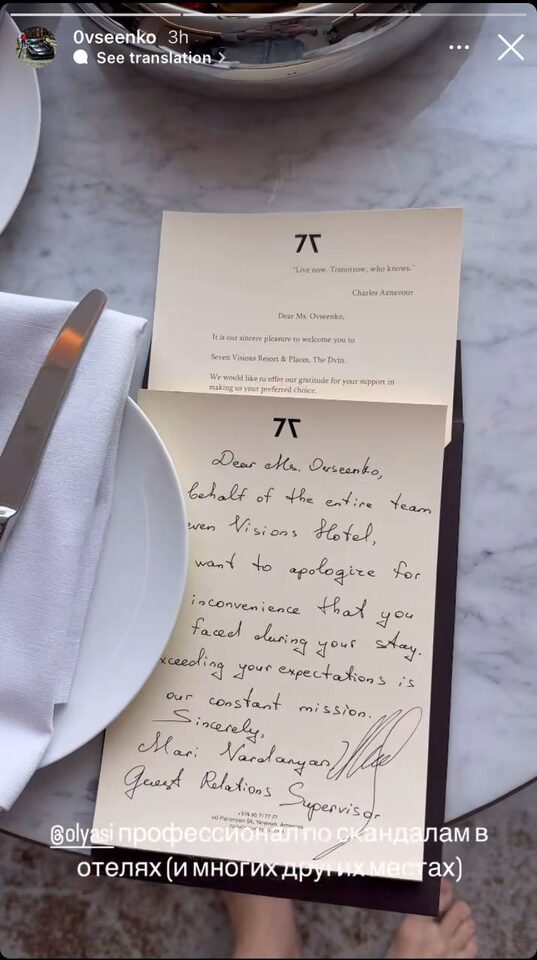 0vseenko 3h
See translation
"Live now. Tomorrow, who knows."
Charles Aznavour
Dear Ms. Ovseenko,
It is our sincere pleasure to welcome you to
Seven Visions Resort & Places, The Dvin.
We would like to offer our gratitude for your support in
making us your preferred choice.
Dear Ms. Ovseenko,
behalf of the entire team
even Visions Hotel,
want to apologize for
inconvenience that you
faced during your stay.
xceeding your expectations is
our constant mission.
Sincerely,
Mari Vardanyan
Guest Relations Supervisor
+374 10 71 77 77
40 Paronyan Str, Yerevan, Armenia
@olyasi профессионал по скандалам в
отелях (и многих других местах)